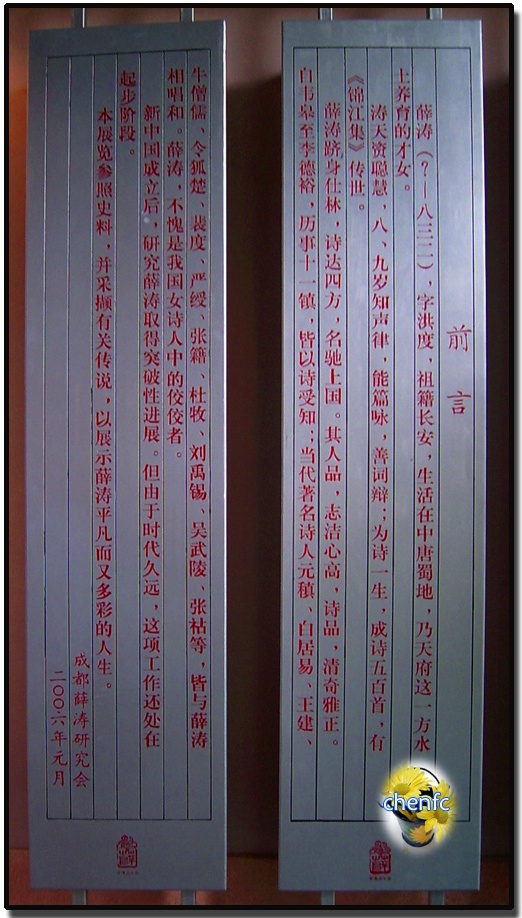 前言
薛涛（？—八三二），字洪度，祖籍长安，生活在中唐蜀地，乃天府这一方水
土养育的才女。
涛天资聪慧，八、九岁知声律，能篇咏，善词辩；为诗一生，成诗五百首，有
《锦江集》传世。
薛涛跻身仕林，诗达四方，名驰上国。其人品，志洁心高，诗品，清奇雅正。
自韦皋至李德裕，历事十一镇，皆以诗受知；当代著名诗人元稹、白居易、王建、
牛僧儒、令狐楚、裴度、严绶、张籍、杜牧、刘禹锡、吴武陵、张祜等，皆与薛涛
相唱和。薛涛，不愧是我国女诗人中的佼佼者。
新中国成立后，研究薛涛取得突破性进展。但由于时代久远，这项工作还处在
起步阶段。
本展览参照史料，并采撷有关传说，以展示薛涛平凡而又多彩的人生。
成都薛涛研究会
二〇〇六年元月
chenfc